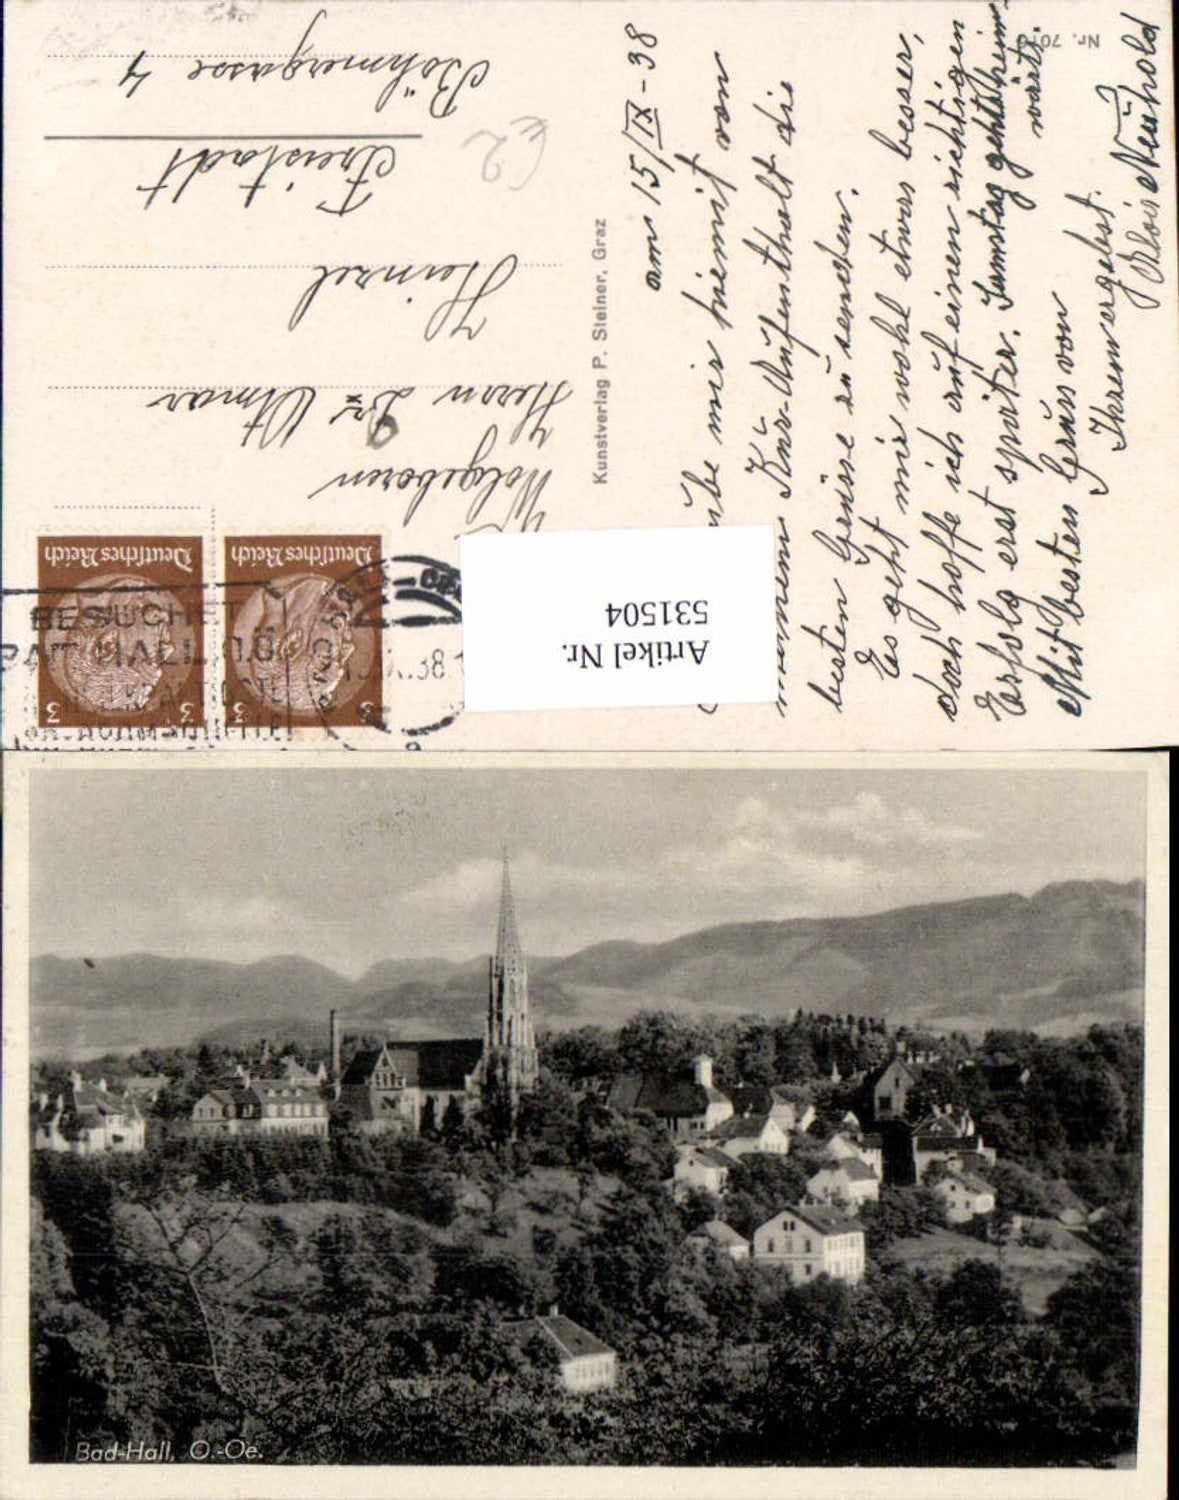 am 15/IX-38
mir hiemit von
meinem Kúr-Aúfenthalt die
besten Grüsse zú senden.
Es geht mir wohl etwas besser,
doch hoffe ich aúf einen richtigen
Erfolg erst später. Samstag geht's heim-
wärts.
Mit besten Grúss von
Ihrem ergebst.
Alois Neúhold
Nr. 701
Kunstverlag P. Steiner, Graz
Wolgeboren
Herrn Dr Otmar
Heinzel
Freistadt
Böhmergasse 4
€2
Deutsches Reich
3 3
Deutsches Reich
3 3
BESUCHET
BAD HALL, O.Ö.
38
Artikel Nr.
531504
Bad-Hall, O.-Oe.